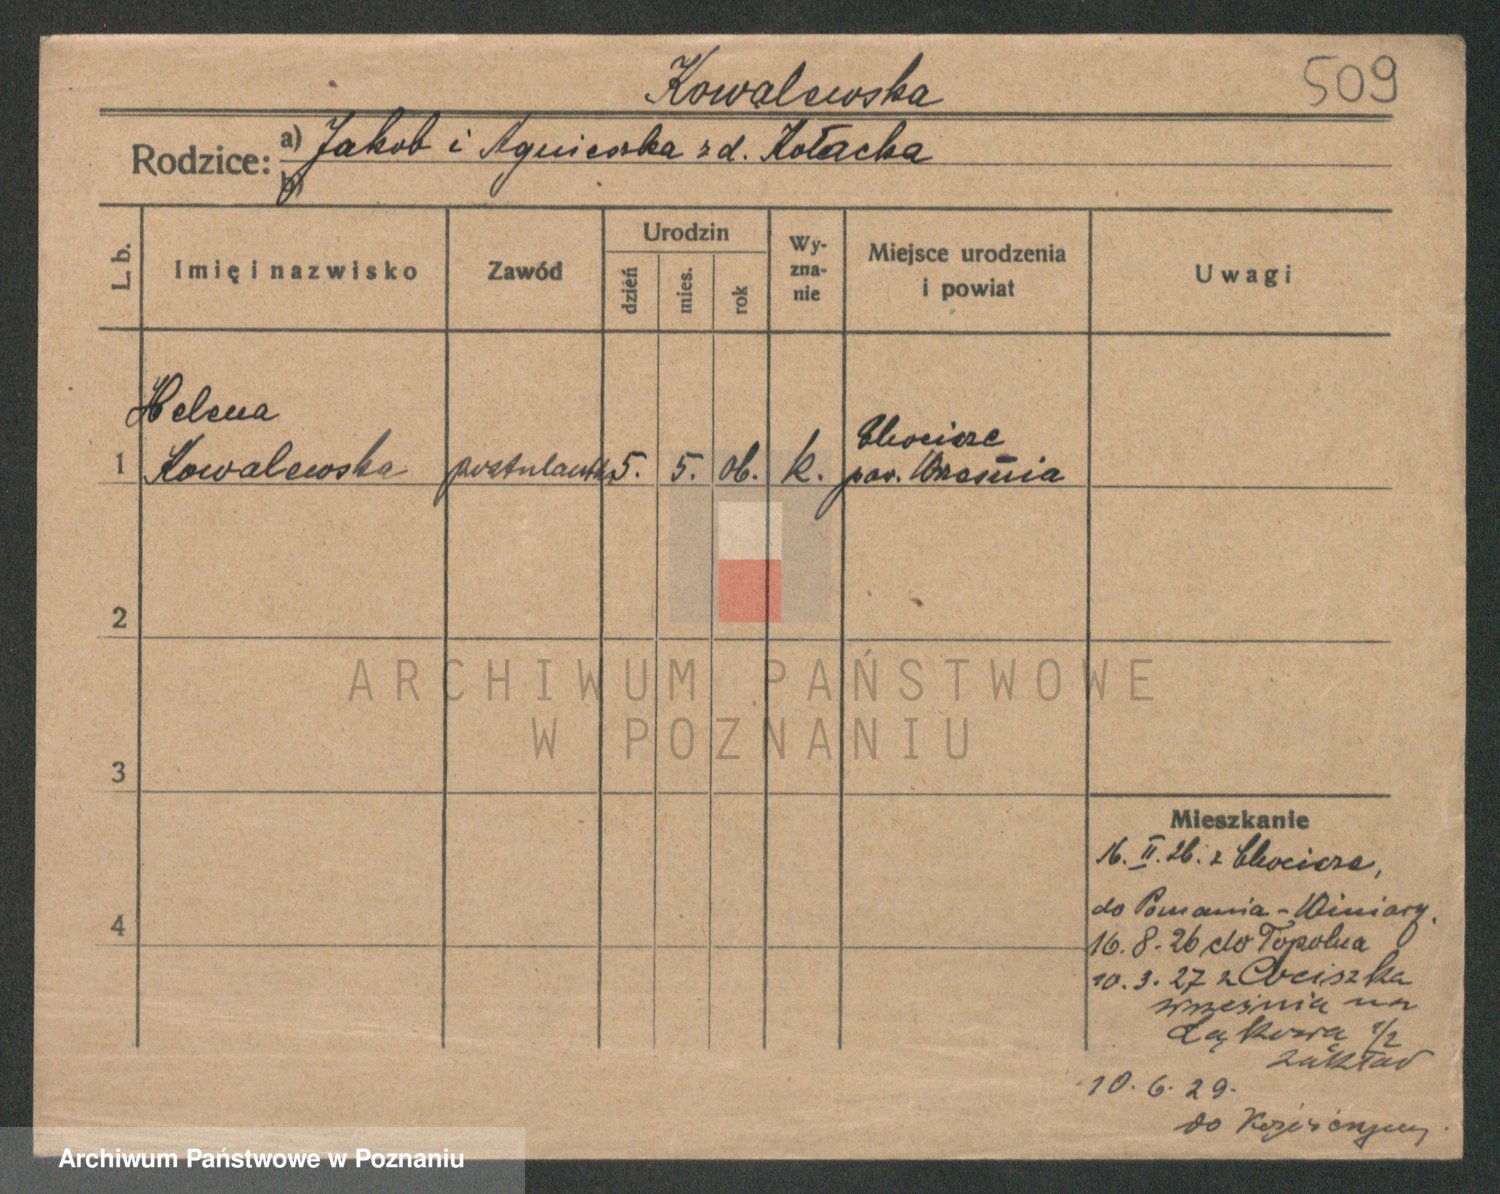 Kowalewska
509
Rodzice: a) Jakob i Agnieszka z d. Kołacka
b)
L. b.
Imię i nazwisko
Zawód
Urodzin
dzień
mies.
rok
Wy-
zna-
nie
Miejsce urodzenia
i powiat
Uwagi
Helena
1 Kowalewska postulantka 5. 5. 06. k.
Chocicze
pow. Września
2
3
4
Mieszkanie
16. II. 26. z Chocicze,
do Poznania - Winiary.
16. 8. 26 do Topolna
10. 3. 27 z Cociszka
września na
Łąkowa 1/2
zakład
10. 6. 29.
do
ARCHIWUM PAŃSTWOWE
W POZNANIU
Archiwum Państwowe w Poznaniu